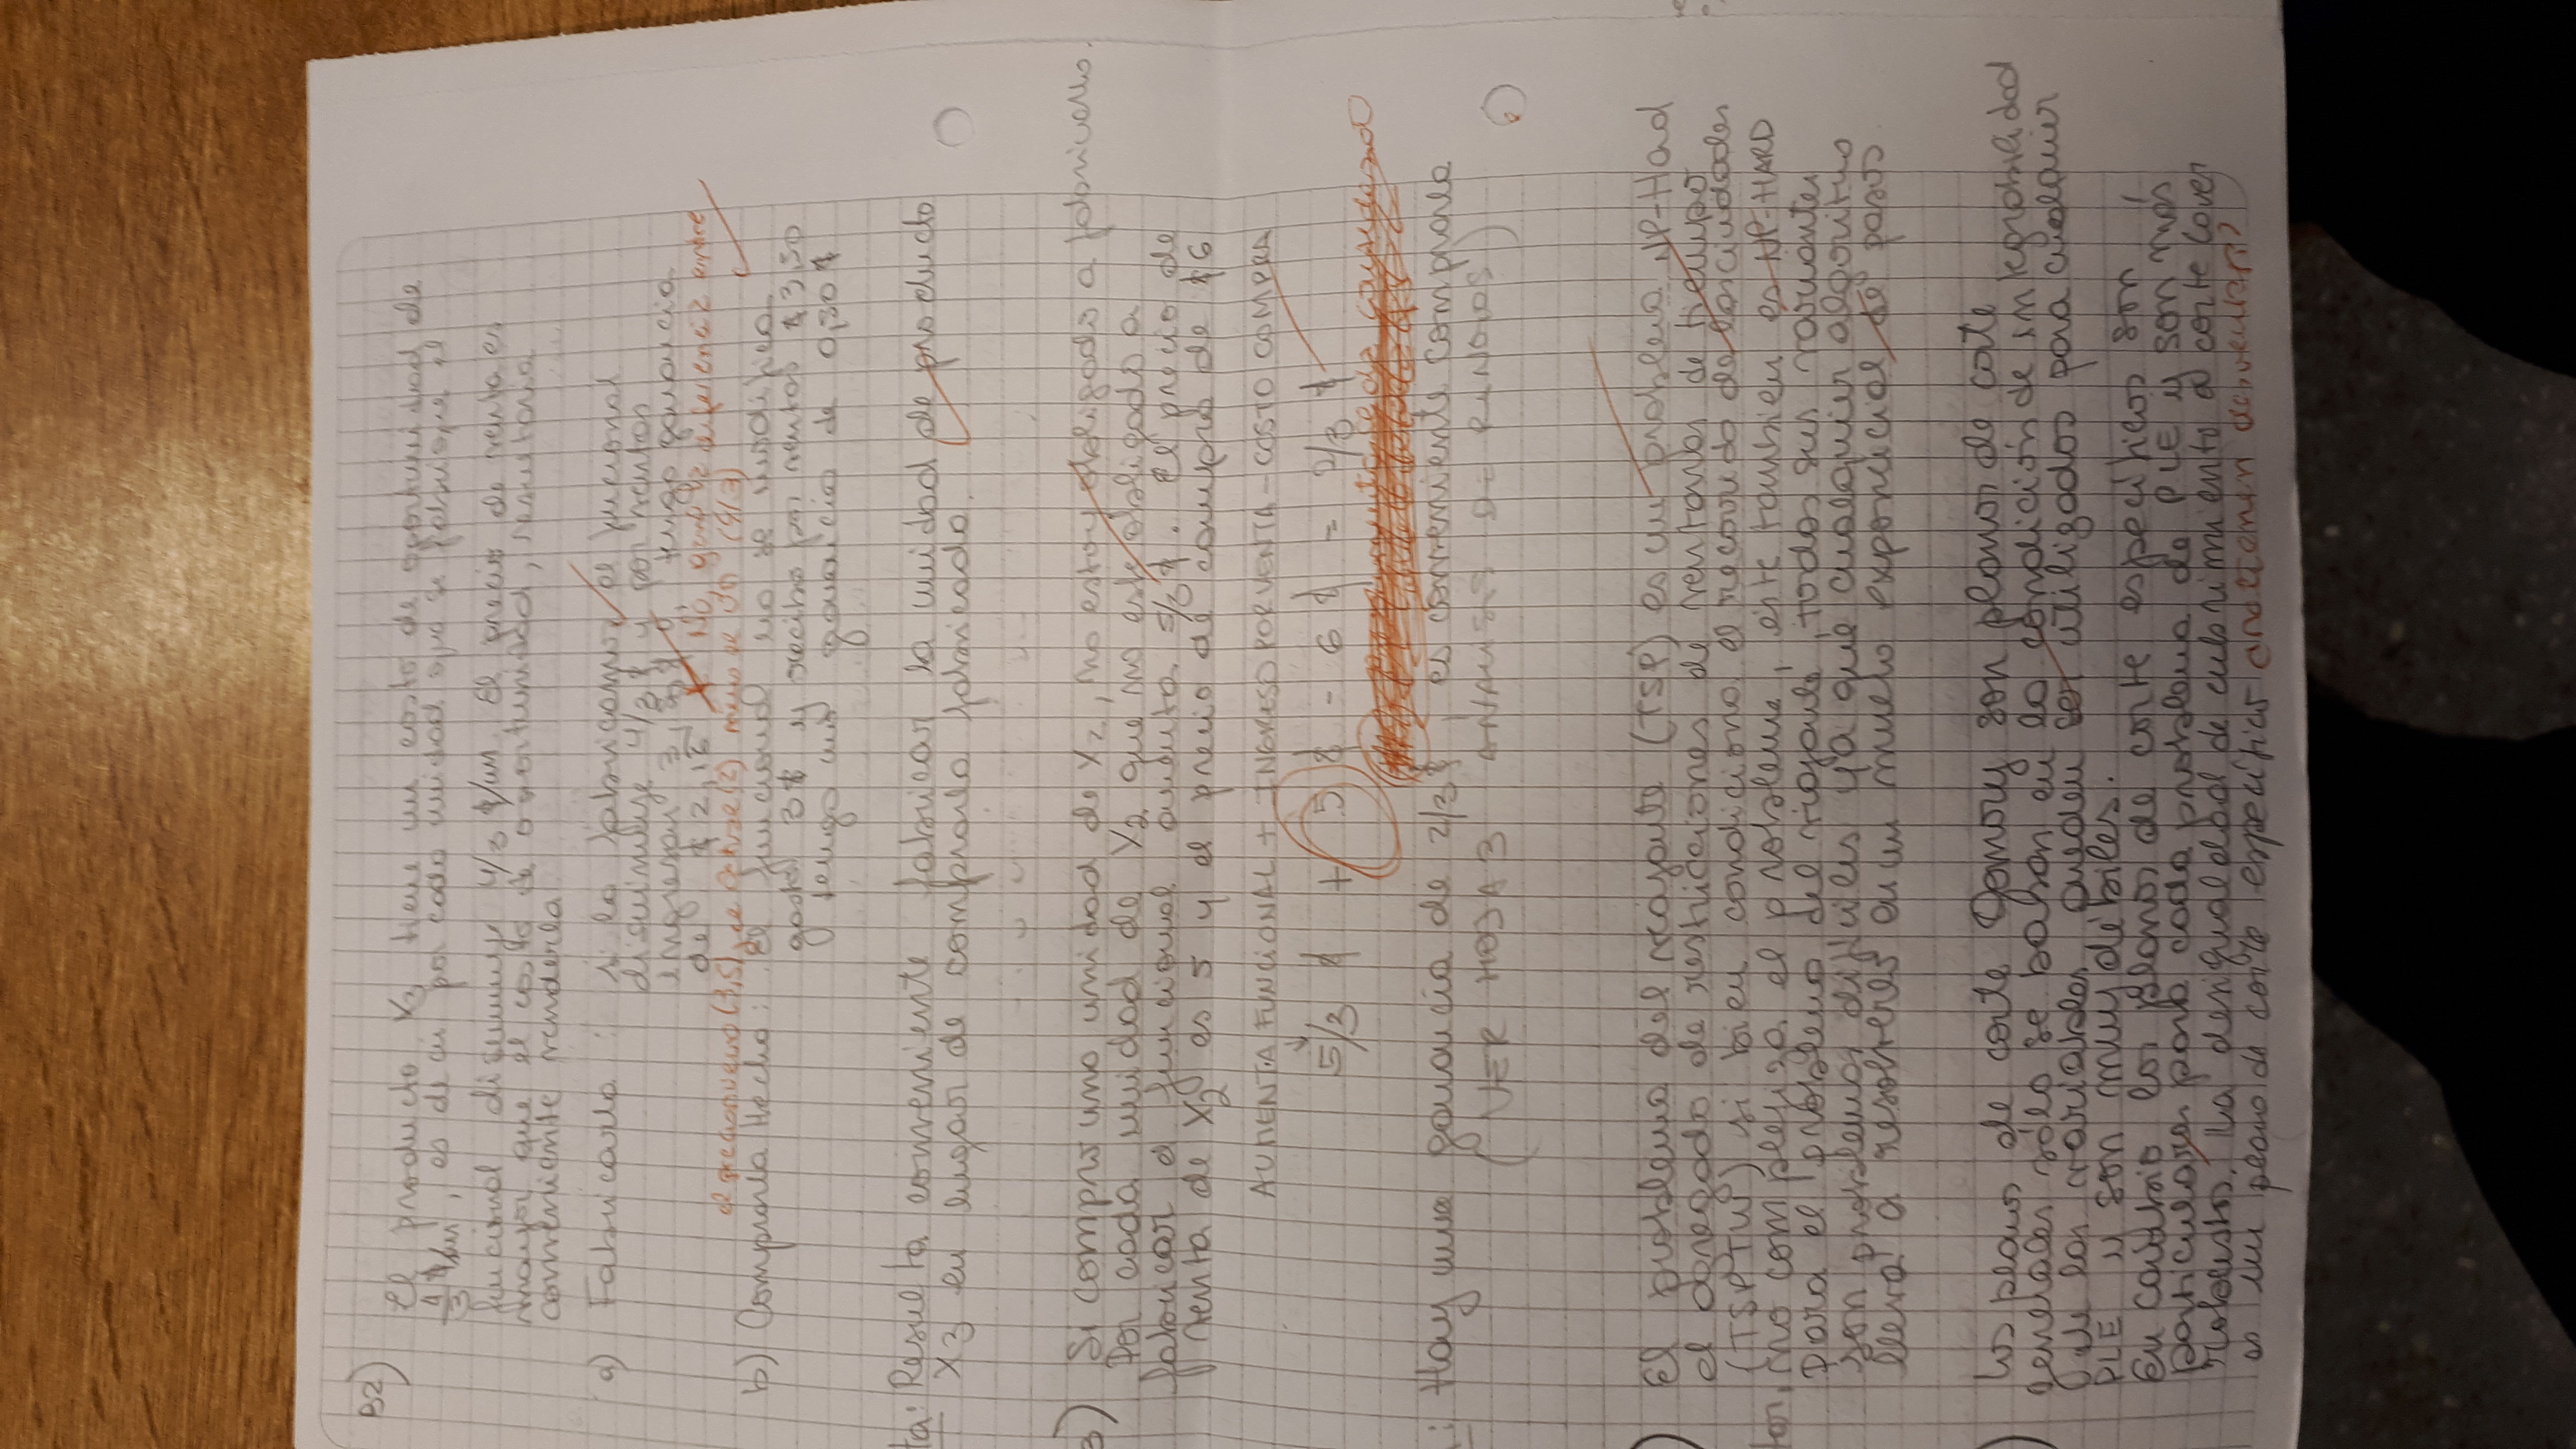 B2)
El producto X3 tiene un costo de oportunidad de
4/3 $/un, es decir por cada unidad que se fabrique el
funcional disminuye 4/3 $/un. El precio de venta es
mayor que el costo de oportunidad, resultaria
conveniente venderla
a) Fabricarla : si la fabricamos el funcional
disminuye 4/3 $ y por ventas
ingresan 3,50 $, tengo ganancia
de $ 2,16 No, gana la diferencia entre
el precio nuevo (3,5), el actual (2) menos el (4/3)
b) Comprarla Hecha: El funcional no se modifica
gasto 3$ y recibo por ventas $3,50
tengo una ganancia de 0,50 $
ta: Resulta conveniente fabricar la unidad de producto
X3 en lugar de comprarla fabricada.
3) Si compro una unidad de X2, no estoy obligado a fabricarlo.
Por cada unidad de X2 que no este obligado a
fabricar el funcional aumenta 5/3 $. El precio de
venta de X2 es 5 y el precio de compra de $6
AUMENTA FUNCIONAL + INGRESO POR VENTA - COSTO COMPRA
5/3 $ + 5 $ - 6 $ = 2/3 $
: Hay una ganancia de 2/3 $, es conveniente comprarla
(VER HOJA 3 ANALISIS DE RENDTOS)
) El problema del viajante (TSP) es un problema NP-Had
el agregado de restricciones de ventanas de tiempo
(TSPTW) si bien condiciona el recorrido de las ciudades
no complejiza el problema, éste tambien es NP-HARD
Para el problema del viajante, todas sus variantes
son problemas dificiles ya que cualquier algoritmo
lleva a resolverlos en un numero exponencial de pasos
) Los planos de corte Gomory son planos de corte
generales sólo se basan en la condición de integrabilidad
de las variables, pueden ser utilizados para cualquier
PLE y son muy débiles.
En cambio los planos de corte específicos son
particulares para cada problema de PLE y son más
robustos. La desigualdad de cubrimiento o corte Cover
es un plano de corte específico